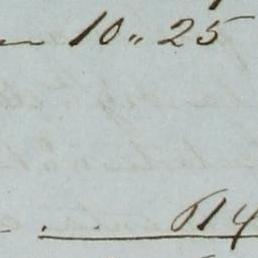 10 " 25
. . 614